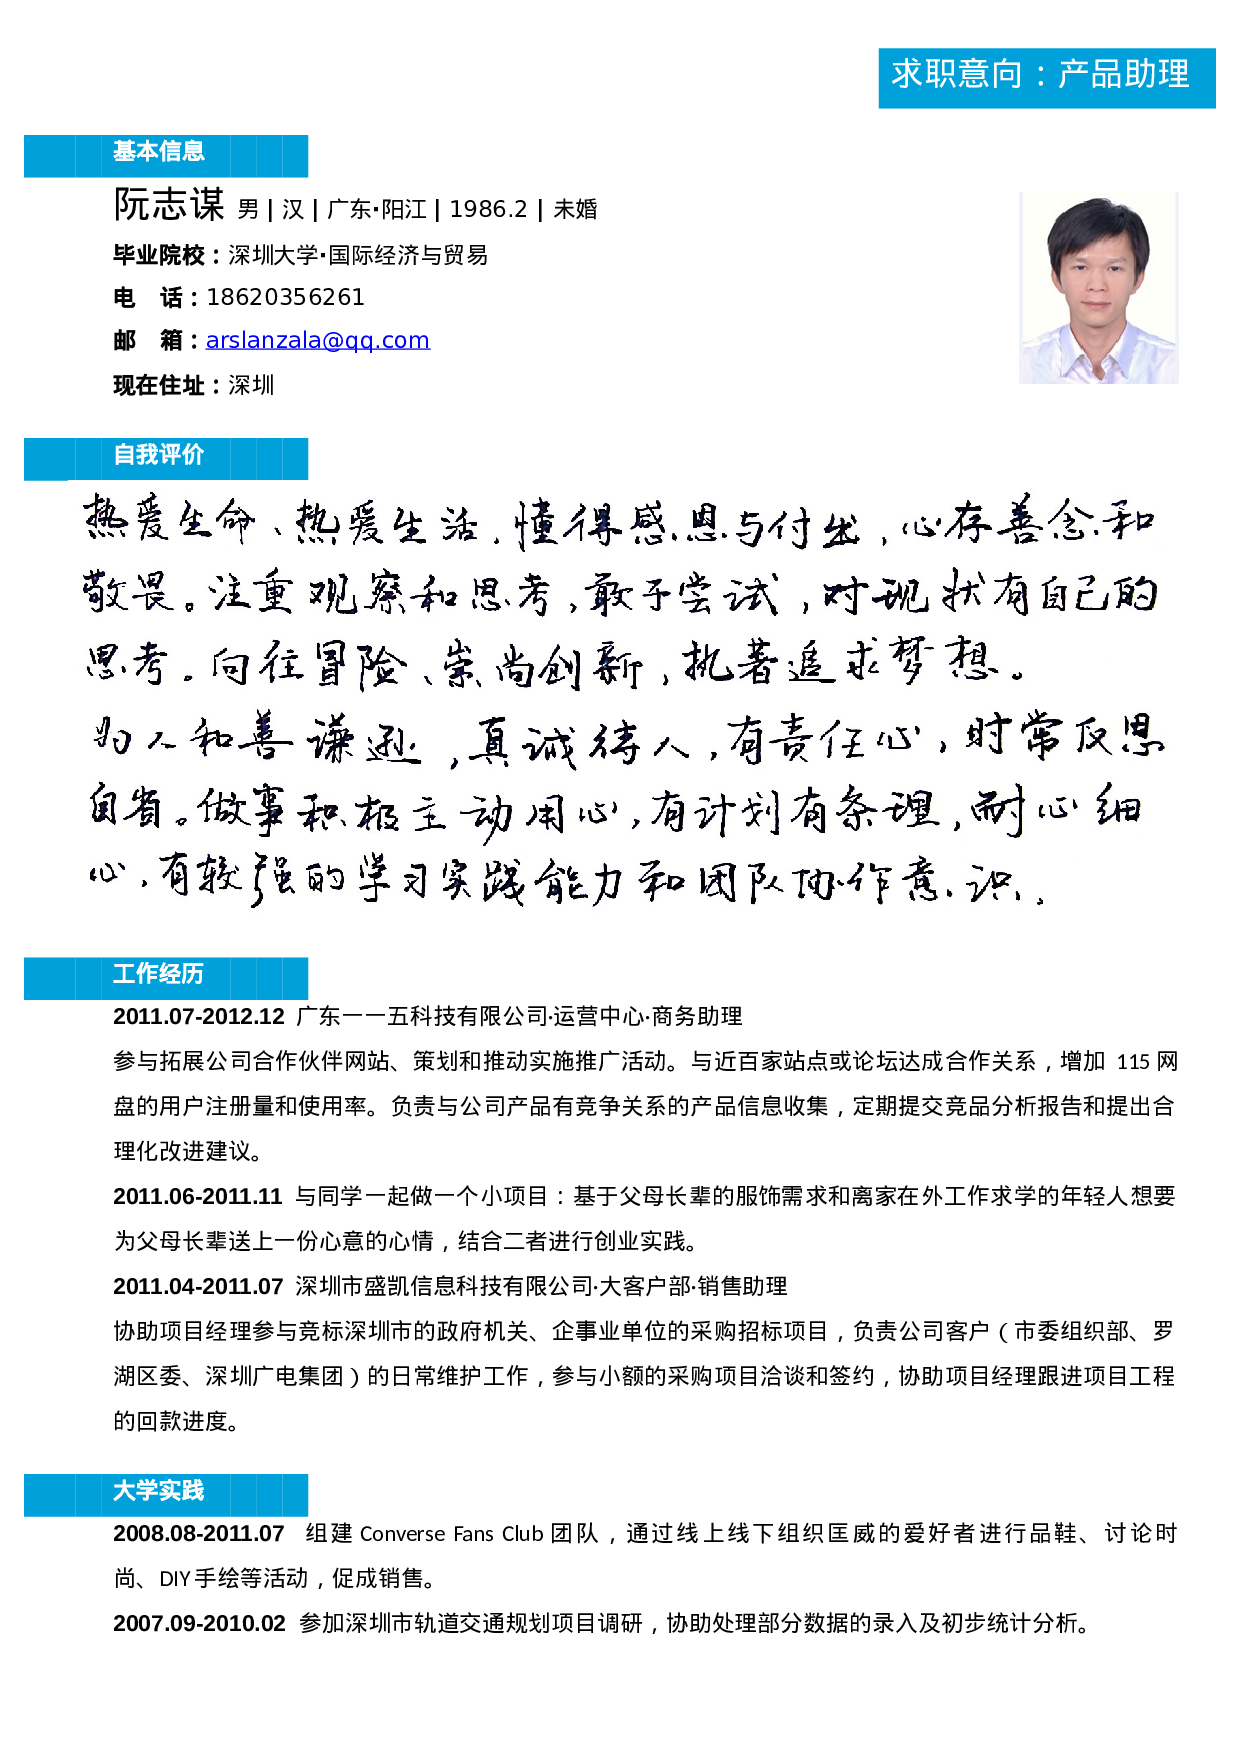 求职意向：产品助理
基本信息
阮志谋 男 | 汉 | 广东·阳江 | 1986.2 | 未婚
毕业院校：深圳大学·国际经济与贸易
电　话：18620356261
邮　箱：arslanzala@qq.com
现在住址：深圳
自我评价
热爱生命、热爱生活，懂得感恩与付出，心存善念和
敬畏。注重观察和思考，敢于尝试，对现状有自己的
思考。向往冒险、崇尚创新，执著追求梦想。
为人和善谦逊，真诚待人，有责任心，时常反思
自省。做事积极主动用心，有计划有条理，耐心细
心，有较强的学习实践能力和团队协作意识。
工作经历
2011.07-2012.12 广东一一五科技有限公司·运营中心·商务助理
参与拓展公司合作伙伴网站、策划和推动实施推广活动。与近百家站点或论坛达成合作关系，增加 115 网
盘的用户注册量和使用率。负责与公司产品有竞争关系的产品信息收集，定期提交竞品分析报告和提出合
理化改进建议。
2011.06-2011.11 与同学一起做一个小项目：基于父母长辈的服饰需求和离家在外工作求学的年轻人想要
为父母长辈送上一份心意的心情，结合二者进行创业实践。
2011.04-2011.07 深圳市盛凯信息科技有限公司·大客户部·销售助理
协助项目经理参与竞标深圳市的政府机关、企事业单位的采购招标项目，负责公司客户（市委组织部、罗
湖区委、深圳广电集团）的日常维护工作，参与小额的采购项目洽谈和签约，协助项目经理跟进项目工程
的回款进度。
大学实践
2008.08-2011.07 组建 Converse Fans Club 团队，通过线上线下组织匡威的爱好者进行品鞋、讨论时
尚、DIY 手绘等活动，促成销售。
2007.09-2010.02 参加深圳市轨道交通规划项目调研，协助处理部分数据的录入及初步统计分析。